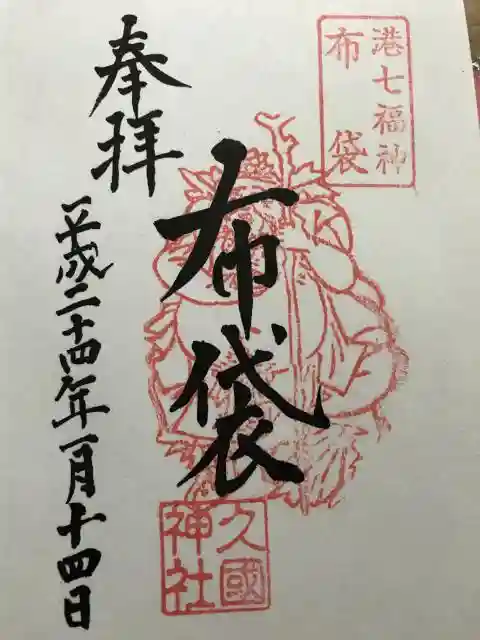 港七福神
布袋
布袋
奉拝
平成二十四年一月十四日
久國
神社